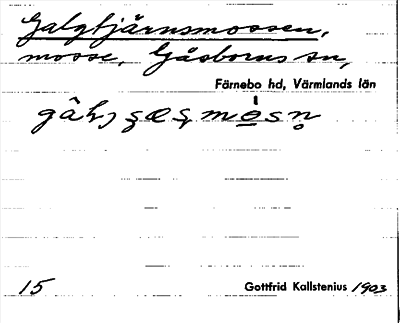 Galgtjärnsmossen,
mosse, Gåsborns sn,
Färnebo hd, Värmlands län
15 Gottfrid Kallstenius 1903